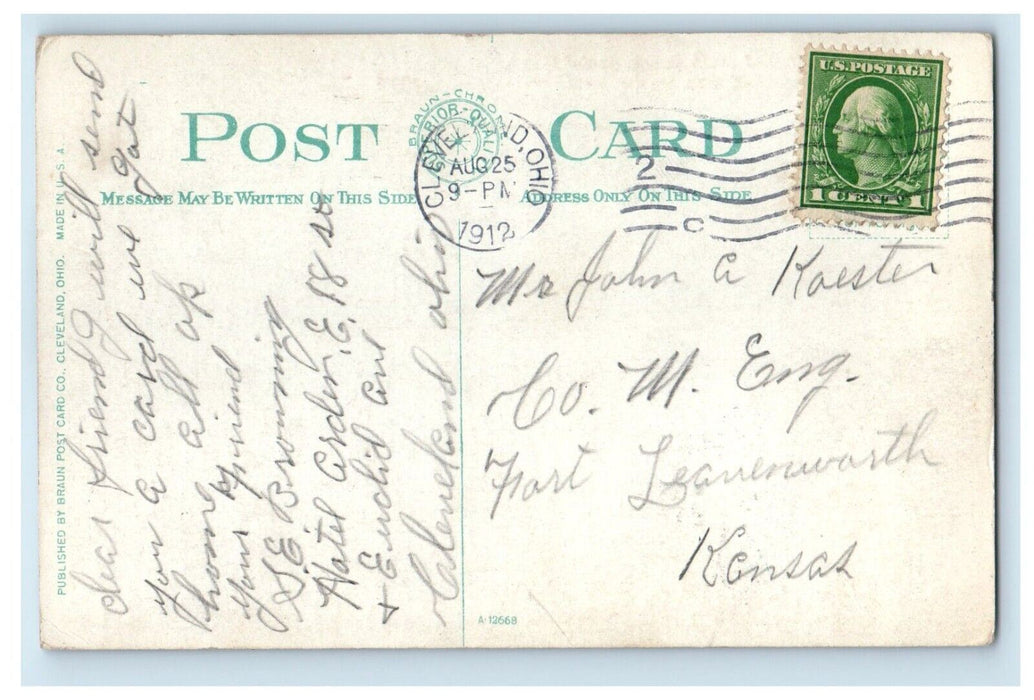 POST CARD
BRAUN-CHROME
SUPERIOR-QUALITY
MESSAGE MAY BE WRITTEN ON THIS SIDE
ADDRESS ONLY ON THIS SIDE
CLEVELAND, OHIO
AUG 25
9-PM
1912
2
C
U.S. POSTAGE
1 CENT 1
PUBLISHED BY BRAUN POST CARD CO., CLEVELAND, OHIO. MADE IN U.S.A.
dear friend g will send
you a card we gat
home all op
yours friend
S E Browning
Hatel Arden, E, 18 st
+ Euclid ave
Cleveland ohio
Mr John A Koester
Co. M. Eng.
Fort Leavenworth
Kansas
A-12668